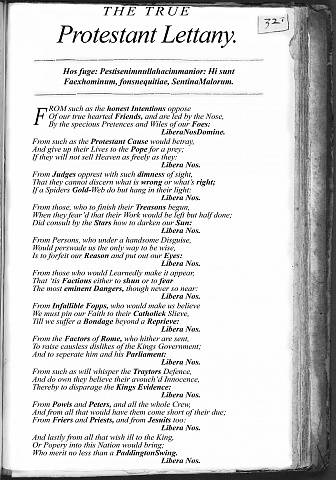 THE TRUE
32.
Protestant Lettany.
Hos fuge: Pestisenimnullahacimmanior: Hi sunt
Faexhominum, fonsnequitiae, SentinaMalorum.
FROM such as the honest Intentions oppose
Of our true hearted Friends, and are led by the Nose,
By the specious Pretences and Wiles of our Foes:
LiberaNosDomine.
From such as the Protestant Cause would betray,
And give up their Lives to the Pope for a prey;
If they will not sell Heaven as freely as they:
Libera Nos.
From Judges opprest with such dimness of sight,
That they cannot discern what is wrong or what's right;
If a Spiders Gold-Web do but hang in their light:
Libera Nos.
From those, who to finish their Treasons begun,
When they fear'd that their Work would be left but half done;
Did consult by the Stars how to darken our Sun:
Libera Nos.
From Persons, who under a handsome Disguise,
Would perswade us the only way to be wise,
Is to forfeit our Reason and put out our Eyes:
Libera Nos.
From those who would Learnedly make it appear,
That 'tis Factions either to shun or to fear
The most eminent Dangers, though never so near:
Libera Nos.
From Infallible Fopps, who would make us believe
We must pin our Faith to their Catholick Slieve,
Till we suffer a Bondage beyond a Reprieve:
Libera Nos.
From the Factors of Rome, who hither are sent,
To raise causless dislikes of the Kings Government;
And to seperate him and his Parliament:
Libera Nos.
From such as will whisper the Traytors Defence,
And do own they believe their avouch'd Innocence,
Thereby to disparage the Kings Evidence:
Libera Nos.
From Powis and Peters, and all the whole Crew,
And from all that would have them come short of their due;
From Friers and Priests, and from Jesuits too:
Libera Nos.
And lastly from all that wish ill to the King,
Or Popery into this Nation would bring;
Who merit no less than a PaddingtonSwing.
Libera Nos.